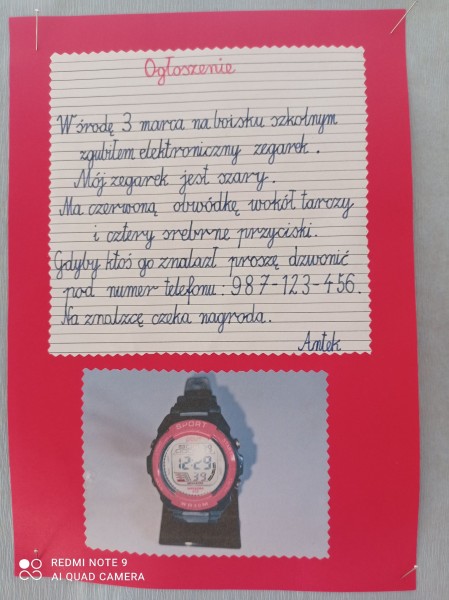 Ogłoszenie
W środę 3 marca na boisku szkolnym
zgubiłem elektroniczny zegarek.
Mój zegarek jest szary.
Ma czerwoną obwódkę wokół tarczy
i cztery srebrne przyciski.
Gdyby ktoś go znalazł proszę dzwonić
pod numer telefonu: 987-123-456.
Na znalzcę czeka nagroda.
Antek
SPORT
12:29
39
REDMI NOTE 9
AI QUAD CAMERA